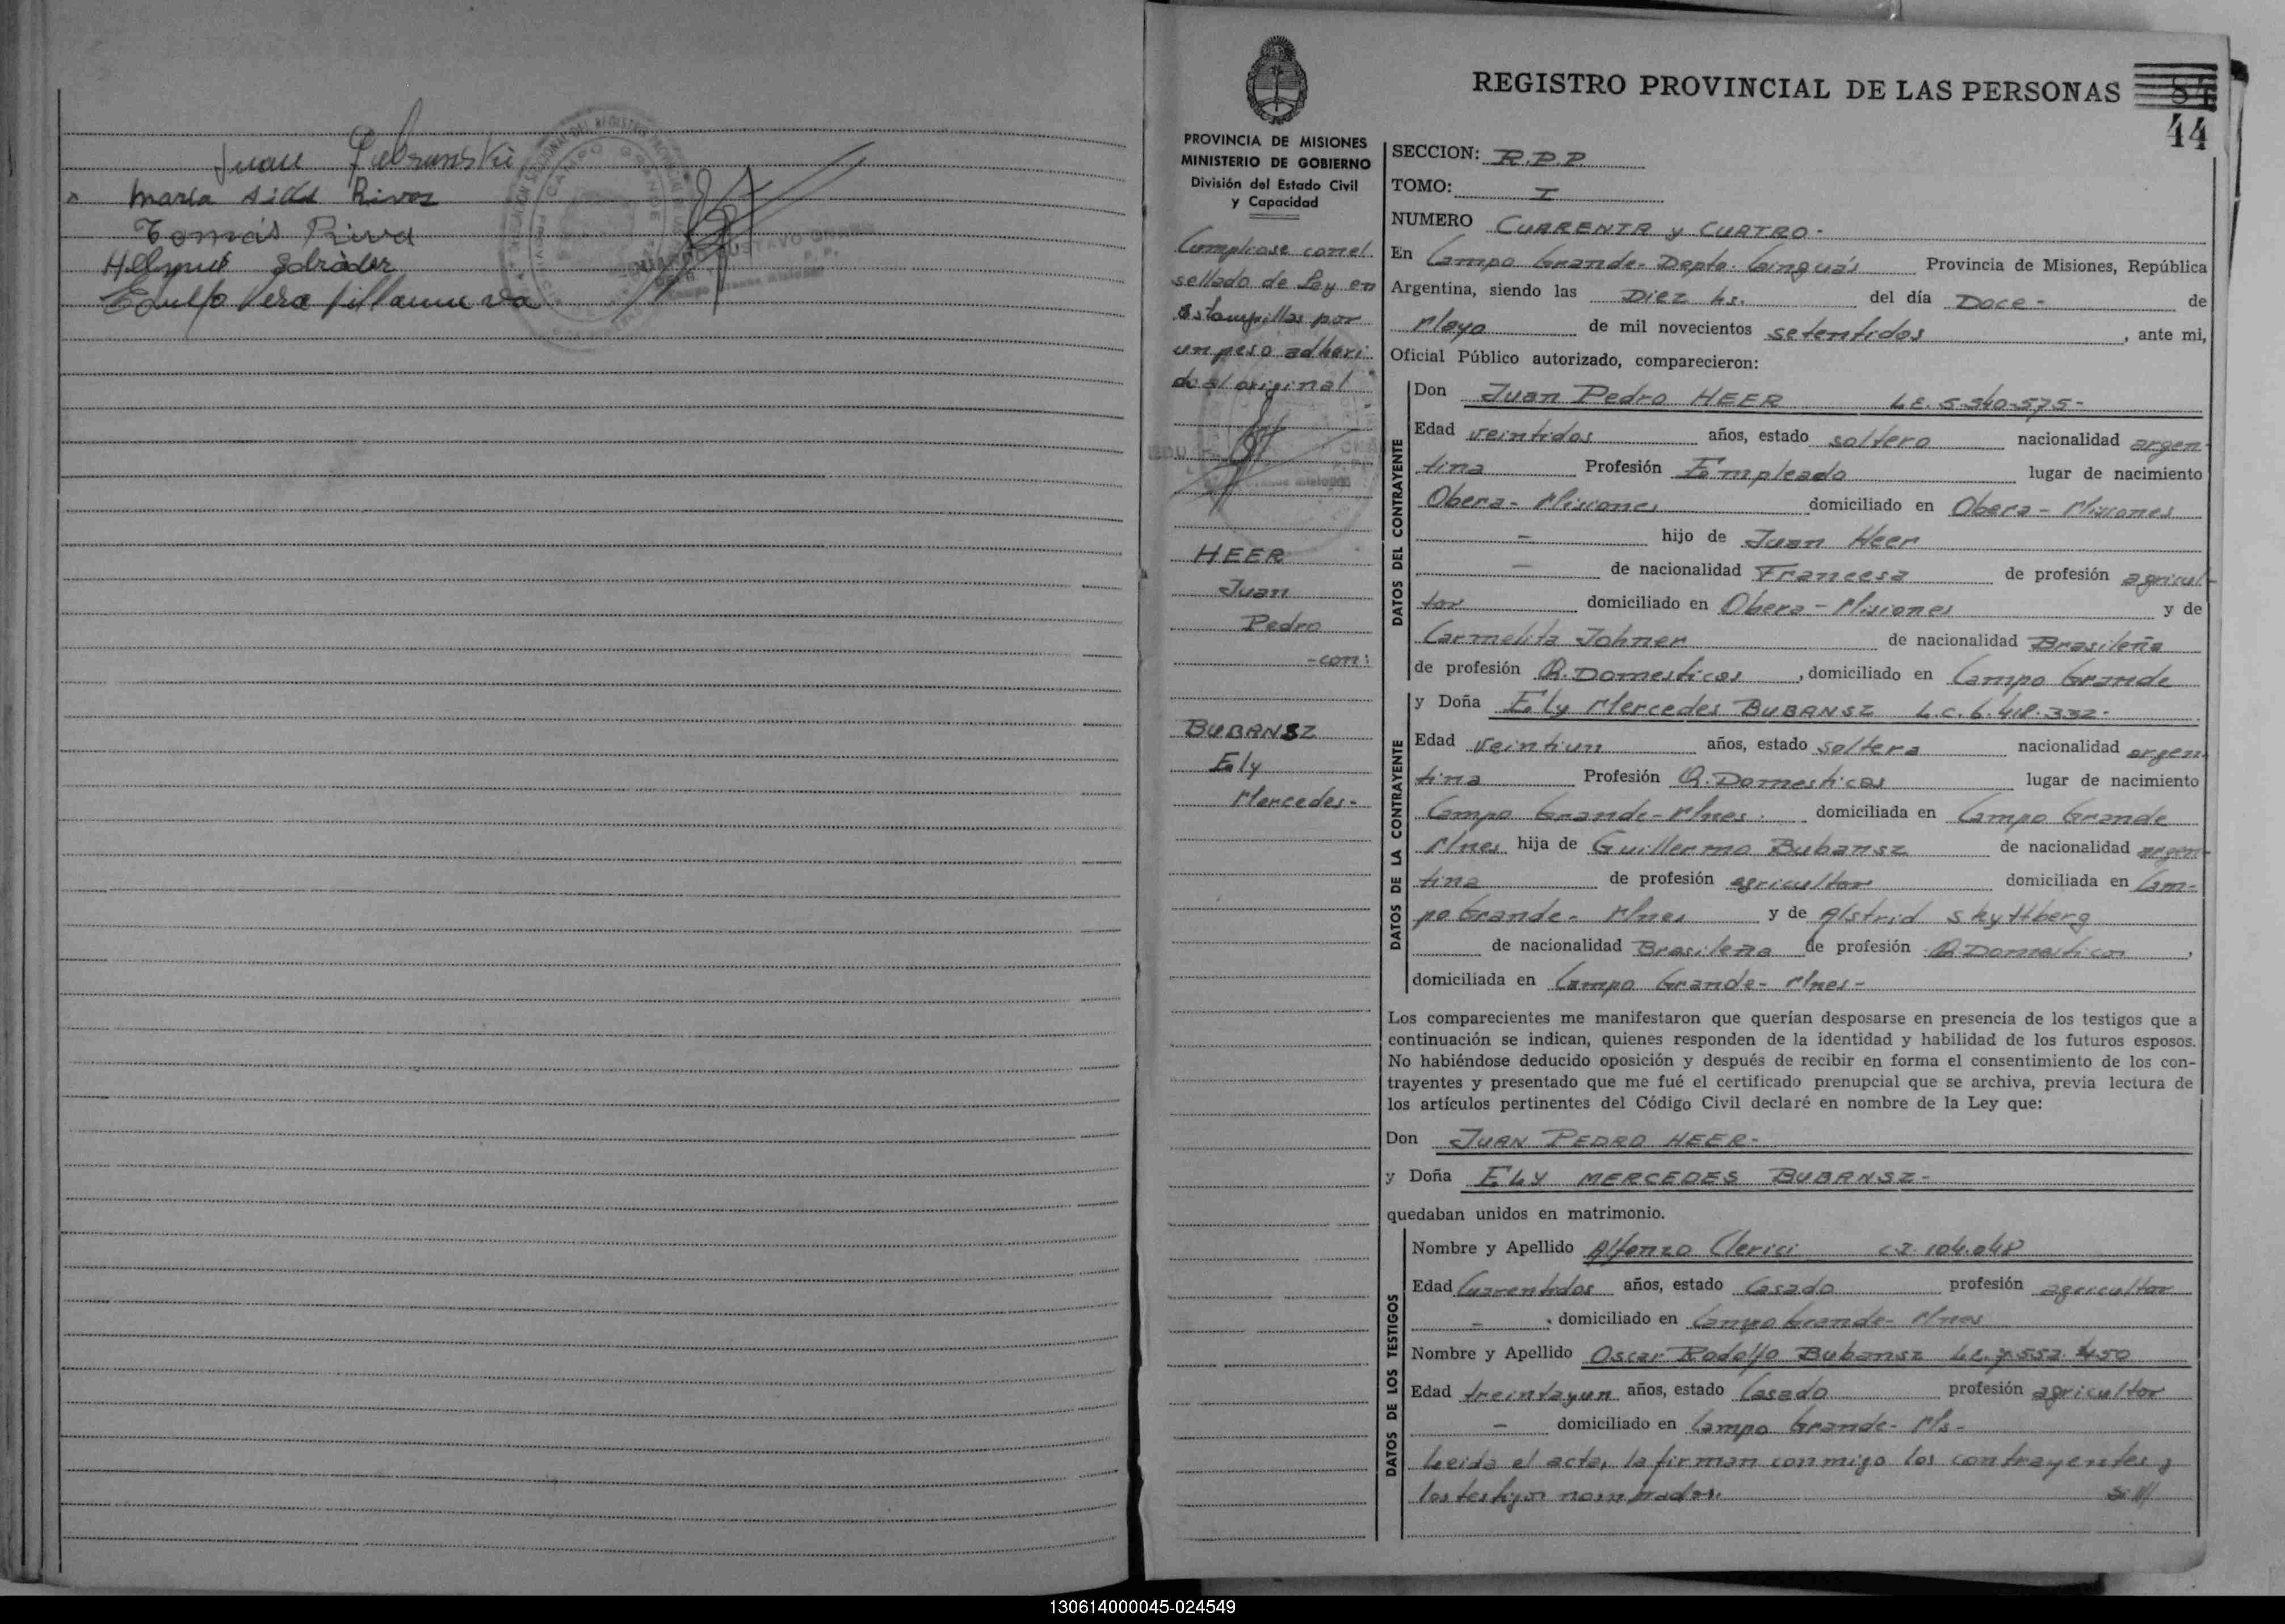 Juan
x Maria Rivas
Tomás
Helmut
Villanueva
CAMPO GRANDE
REGISTRO PROVINCIAL DE LAS PERSONAS
84
44
PROVINCIA DE MISIONES
MINISTERIO DE GOBIERNO
División del Estado Civil
y Capacidad
Cumpliose con el
sellado de Ley en
estampillas por
un peso adheri-
do al original
HEER
Juan
Pedro
-con:
BUBANSZ
Ely
Mercedes-
SECCION: R.P.P.
TOMO: I
NUMERO CUARENTA y CUATRO-
En Campo Grande- Depto. Cainguás Provincia de Misiones, República
Argentina, siendo las Diez hs. del día Doce- de
Mayo de mil novecientos setentidos, ante mi,
Oficial Público autorizado, comparecieron:
DATOS DEL CONTRAYENTE
Don Juan Pedro HEER L.E. 5.540.575-
Edad veintidos años, estado soltero nacionalidad argen-
tina Profesión Empleado lugar de nacimiento
Obera- Misiones domiciliado en Obera- Misiones
- hijo de Juan Heer
- de nacionalidad Francesa de profesión agricul-
tor domiciliado en Obera- Misiones y de
Carmelita Johner de nacionalidad Brasileña
de profesión Q. Domesticos, domiciliado en Campo Grande
DATOS DE LA CONTRAYENTE
y Doña Ely Mercedes BUBANSZ L.C. 6.418.332-
Edad Veintiun años, estado soltera nacionalidad argen-
tina Profesión Q. Domesticos lugar de nacimiento
Campo Grande- Mnes. domiciliada en Campo Grande
Mnes hija de Guillermo Bubansz de nacionalidad argen-
tina de profesión agricultor domiciliada en Cam-
po Grande- Mnes y de Alstrid Skyttberg
de nacionalidad Brasileña de profesión Q. Domesticos,
domiciliada en Campo Grande- Mnes-
Los comparecientes me manifestaron que querían desposarse en presencia de los testigos que a
continuación se indican, quienes responden de la identidad y habilidad de los futuros esposos.
No habiéndose deducido oposición y después de recibir en forma el consentimiento de los con-
trayentes y presentado que me fué el certificado prenupcial que se archiva, previa lectura de
los artículos pertinentes del Código Civil declaré en nombre de la Ley que:
Don JUAN PEDRO HEER-
y Doña ELY MERCEDES BUBANSZ-
quedaban unidos en matrimonio.
DATOS DE LOS TESTIGOS
Nombre y Apellido Alfonzo Clerici C.I. 104.048
Edad Cuarentidos años, estado Casado profesión agricultor
-, domiciliado en Campo Grande- Mnes
Nombre y Apellido Oscar Rodolfo Bubansz L.E. 7.552.450
Edad treintayun años, estado Casado profesión agricultor
- domiciliado en Campo Grande- Ms-
Leida el acta, la firman conmigo los contrayentes y
los testigos nombrados.
130614000045-024549